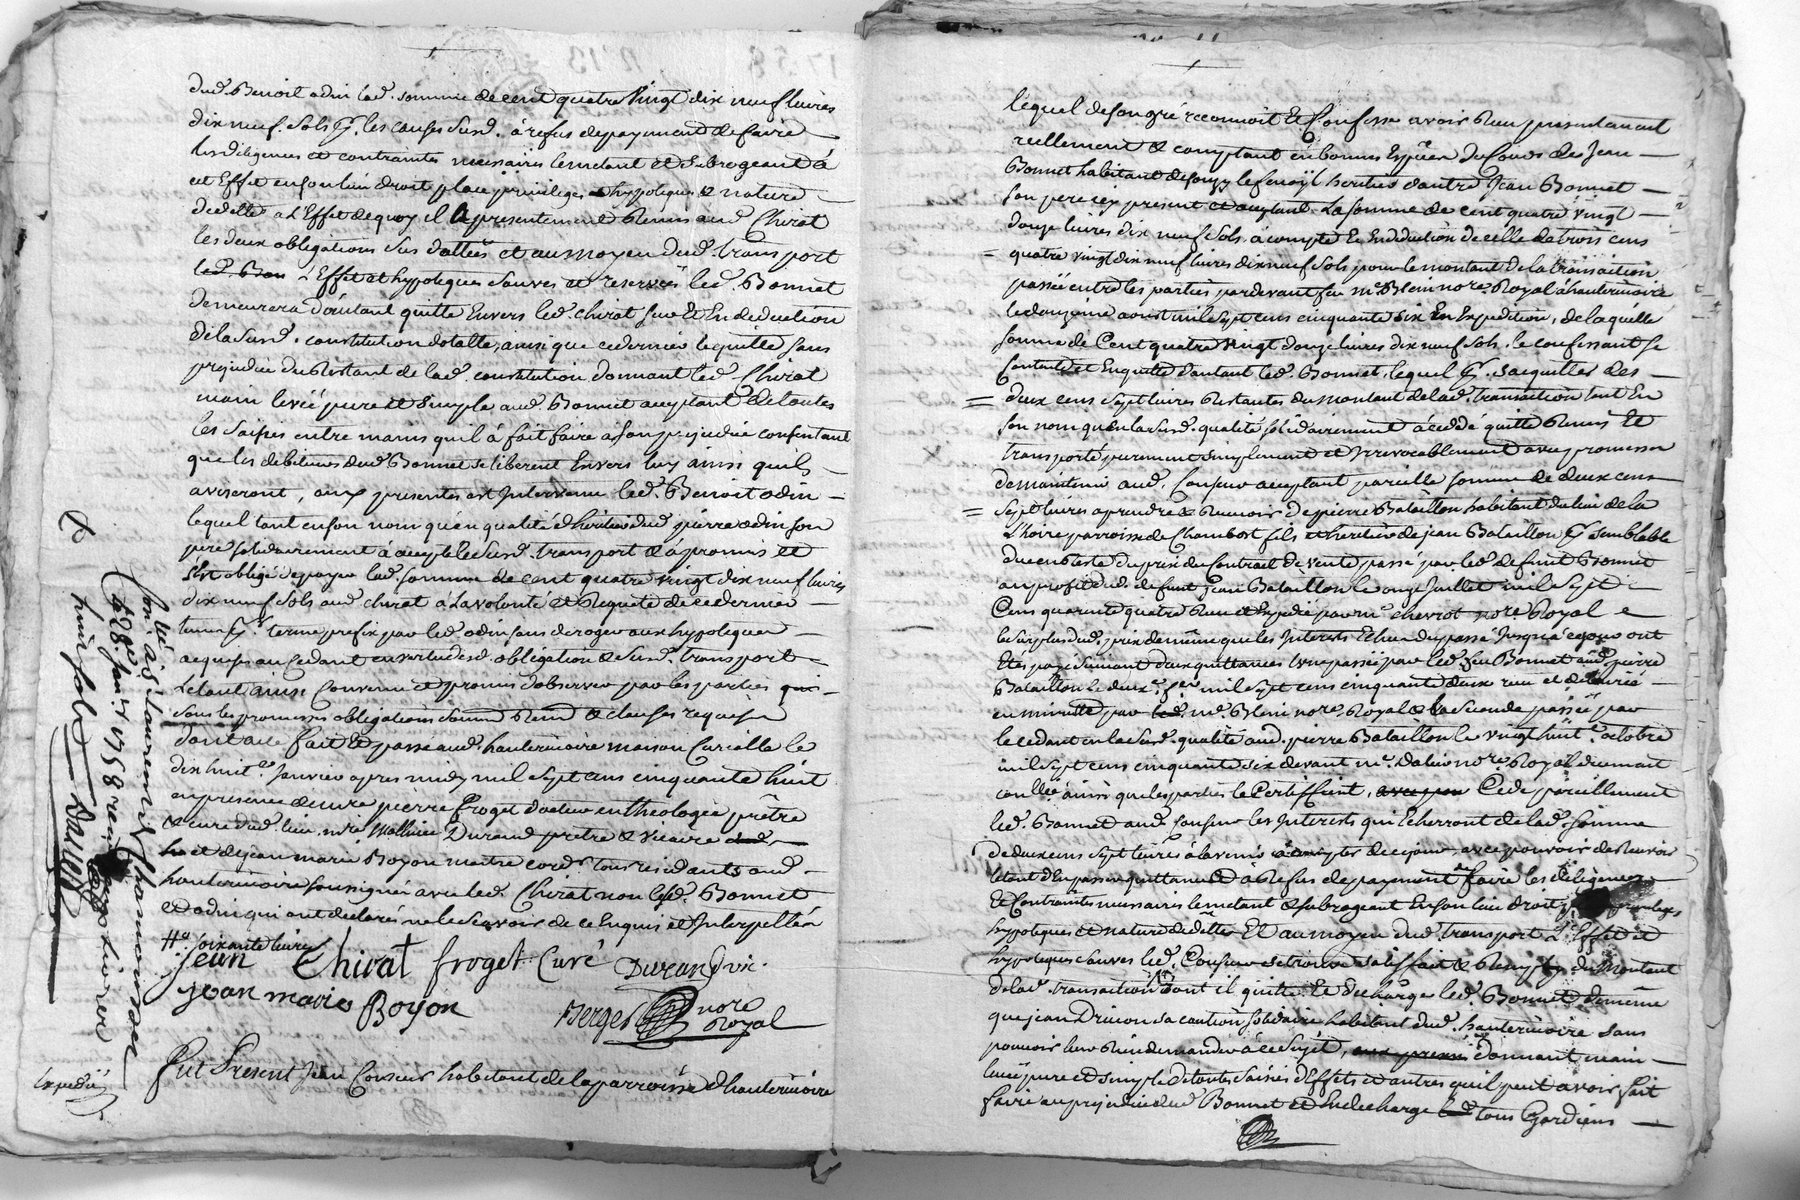 dud. Benoit odin lad. somme de cent quatre vingt dix neuf livres
dix neuf sols p. les causes susd. à refus de payement de faire
les diligences et contraintes necessaires le metant et subrogeant à
cet Effet en son lieu droit place privileges hypoteques & nature
de dette à L'Effet de quoy il a presentement Remis aud. Chirat
les deux obligations sus dattées et au moyen dud. transport
L'Effet et hypoteques sauves et reservées led. Bonnet
demeurera d'autant quitte Envers led. chirat sur Et En deduction
de la susd. constitution dotalle, ainsi que ce dernier le quitte sans
prejudice du Restant de lad. constitution donnant led. Chirat
main levée pure et simple aud. Bonnet acceptant de toutes
les saisies entre mains quil à fait faire à son prejudice consentant
que les debiteurs dud. Bonnet se liberent Envers luy ainsi quils
aviseront, aux presentes est Intervenu led. Benoit odin
lequel tant en son nom qu'en qualité d'heritier dud. pierre odin son
pere solidairement à accepté le susd. transport & à promis et
s'est obligé de payer lad. somme de cent quatre vingt dix neuf livres
dix neuf sols aud. chirat à la volonté et Requete de ce dernier
terme prefix par led. odin sans deroger aux hypoteques
acquises au cedant en vertu desd. obligation & susd. transport
Le tout ainsi Convenu et promis d'observer par les parties
sous les promesses obligations soumis Renon & clauses requises
dont acte fait Et passé aud. hauterivoire maison Curialle le
dix huit.e Janvier apres midy mil sept cens cinquante huit
en presence de mre pierre froget docteur en theologie prêtre
& curé dud. lieu, mre Mathieu Durand prêtre & vicaire
et de jean marie Boyon maitre cord.r tous residants aud.
hauterivoire soussignés avec led. Chirat non led. Bonnet
et odin qui ont declarés ne le sçavoir de ce Enquis et Interpellés
soixante livres
Jean Chirat froget Curé Durand vic.
jean marie Boyon
nore Royal
Fut Present Jean Couseur habitant de la parroisse d'hauterivoire
Expedié
con. a St Laurent de Chamousset
le 28e. Janv. 1758 reçu
huit sols
lequel de son gré reconnoit Et Confesse avoir Reçu presentement
reellement & comptant en bonnes Especes du Cours de Jean
Bonnet habitant de Souzy heritier d'autre Jean Bonnet
son pere icy present et acceptant La somme de cent quatre vingt
douze livres dix neuf sols à compte & En deduction de celle de trois cens
quatre vingt dix neuf livres dix neuf sols pour le montant de la transaction
passée entre les parties pardevant feu me. Blein nore. Royal à hauterivoire
le douzieme aoust mil sept cens cinquante six En Expedition, de laquelle
somme de Cent quatre vingt douze livres dix neuf sols, le confessant se
contente et Enquitte d'autant led. Bonnet, lequel p. s'acquitter des
deux cens sept livres Restantes du montant de lad. transaction tant En
son nom qu'en la susd. qualité solidairement à cédé quitté Remis Et
transporté purement simplement et Irrevocablement avec promesse
de maintenir aud. Couseur acceptant pareille somme de deux cens
sept livres à prendre & Recevoir de pierre Bataillon habitant du lieu de la
Lhoire parroisse de Chambost fils et heritier de jean Bataillon p. semblable
due en Reste du prix du Contract de vente passé par led. defunt Bonnet
au profit dud. defunt Jean Bataillon le onze Juillet mil sept
Cens quarante quatre Reçu et Expedié par me. chevrot nore. Royal
le surplus dud. prix de même que les Interests Echus du passé jusqu'à ce jour ont
Etés payés suivant deux quittances l'une passée par led. feu Bonnet aud. pierre
Bataillon le deux.e fev. mil sept cens cinquante deux reçu et delivrée
en minutte par me. Blein nore. Royal & la seconde passée par
le cedant en la susd. qualité aud. pierre Bataillon le vingt huit.e octobre
mil sept cens cinquante six devant me. nore. Royal
ainsi que les parties le Certiffient, Cede pareillement
led. Bonnet aud. Couseur les Interests qui Echerront de lad. somme
de deux cens sept livres à l'avenir à compter de ce jour, avec pouvoir de Recevoir
le tout d'En passer quittance & à Refus de payement de faire les diligences
Et Contraintes necessaires le metant & subrogeant En son lieu droit privileges
hypoteques et nature de dette Et au moyen dud. transport L'Effet et
hypoteques sauves led. Couseur se trouve satisfait & Remply du Montant
de lad. transaction dont il quitte Et decharge led. Bonnet de même
que jean sa caution solidaire habitant dud. hauterivoire sans
pouvoir leur Rien demander à ce sujet, donnant main
levée pure et simple de toutes saisies d'Effets et autres qu'il peut avoir fait
faire au prejudice dud. Bonnet et En decharge tous Gardiens